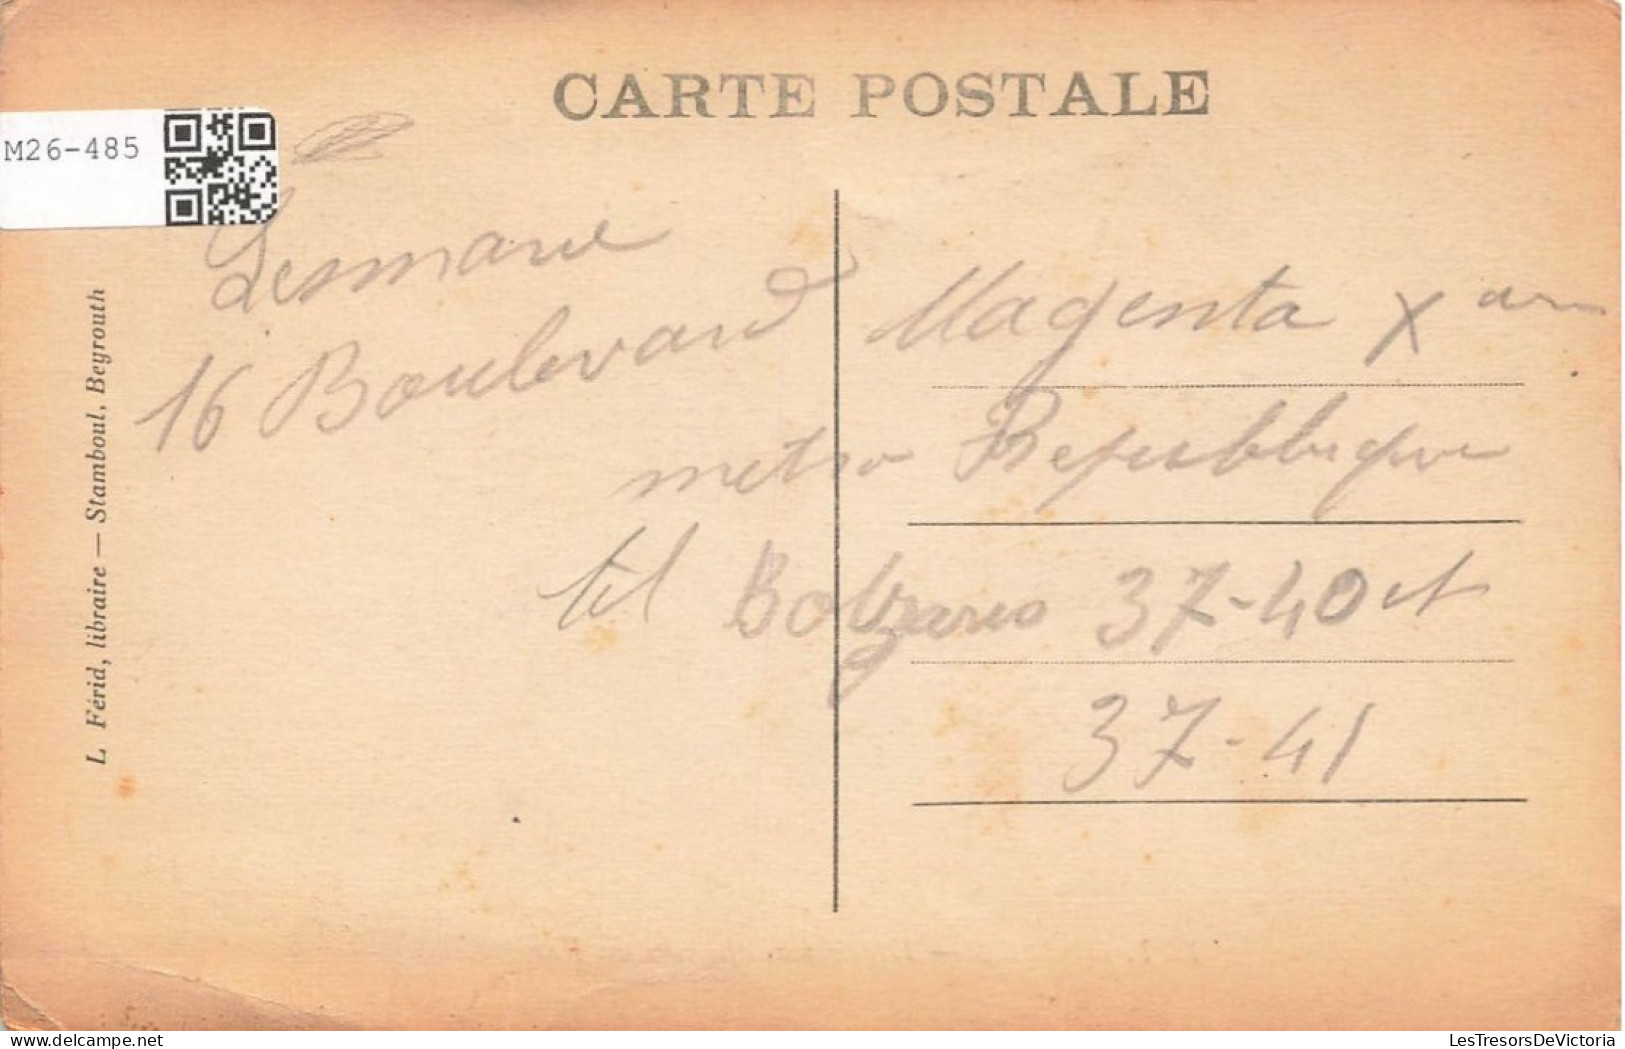 CARTE POSTALE
M26-485
Lesmarie
16 Boulevard Magenta X arr
metro Republique
tel Botzaris 37-40 et
37-41
L. Férid, libraire — Stamboul, Beyrouth
delcampe.net
LesTresorsDeVictoria